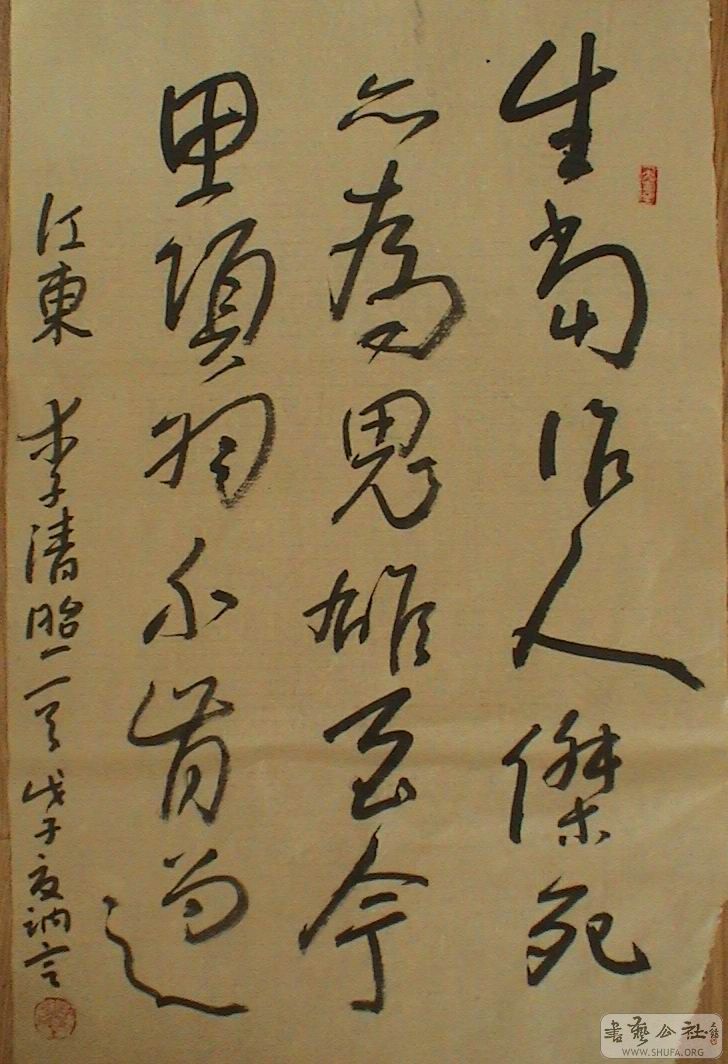 生當作人傑死
亦為鬼雄至今
思項羽不肯過
江東 李清照一首 戊子夏訥言
書藝公社
WWW.SHUFA.ORG